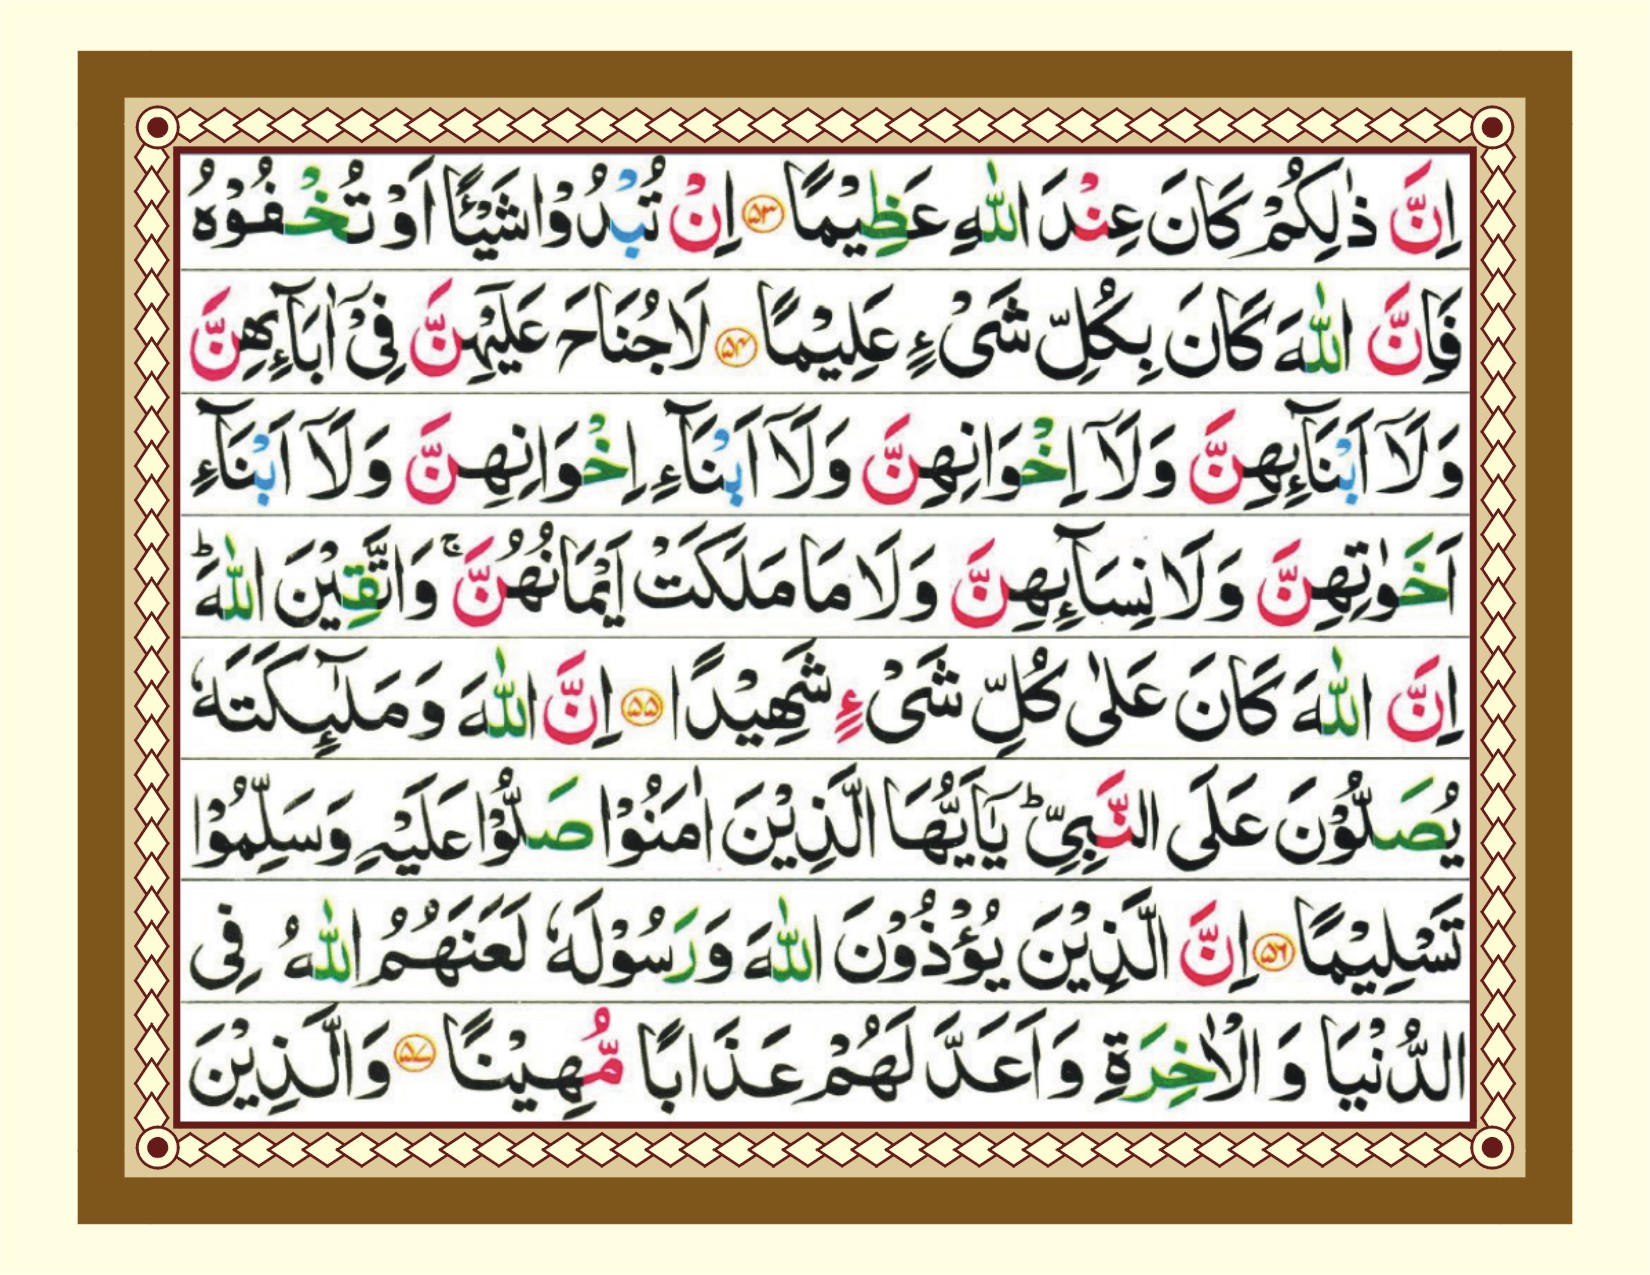 اِنَّ ذٰلِكُمْ كَانَ عِنْدَ اللّٰهِ عَظِيْمًا ﴿۵۳﴾ اِنْ تُبْدُوْا شَيْـًٔا اَوْ تُخْفُوْهُ
فَاِنَّ اللّٰهَ كَانَ بِكُلِّ شَیْءٍ عَلِيْمًا ﴿۵۴﴾ لَا جُنَاحَ عَلَيْهِنَّ فِیْۤ اٰبَآئِهِنَّ
وَلَاۤ اَبْنَآئِهِنَّ وَلَاۤ اِخْوَانِهِنَّ وَلَاۤ اَبْنَآءِ اِخْوَانِهِنَّ وَلَاۤ اَبْنَآءِ
اَخَوٰتِهِنَّ وَلَا نِسَآئِهِنَّ وَلَا مَا مَلَكَتْ اَيْمَانُهُنَّ ۚ وَاتَّقِيْنَ اللّٰهَ ؕ
اِنَّ اللّٰهَ كَانَ عَلٰی كُلِّ شَیْءٍ شَهِيْدًا ﴿۵۵﴾ اِنَّ اللّٰهَ وَمَلٰٓئِكَتَهٗ
يُصَلُّوْنَ عَلَی النَّبِیِّ ؕ يٰۤاَيُّهَا الَّذِيْنَ اٰمَنُوْا صَلُّوْا عَلَيْهِ وَسَلِّمُوْا
تَسْلِيْمًا ﴿۵۶﴾ اِنَّ الَّذِيْنَ يُؤْذُوْنَ اللّٰهَ وَرَسُوْلَهٗ لَعَنَهُمُ اللّٰهُ فِی
الدُّنْيَا وَ الْاٰخِرَةِ وَاَعَدَّ لَهُمْ عَذَابًا مُّهِيْنًا ﴿۵۷﴾ وَالَّذِيْنَ